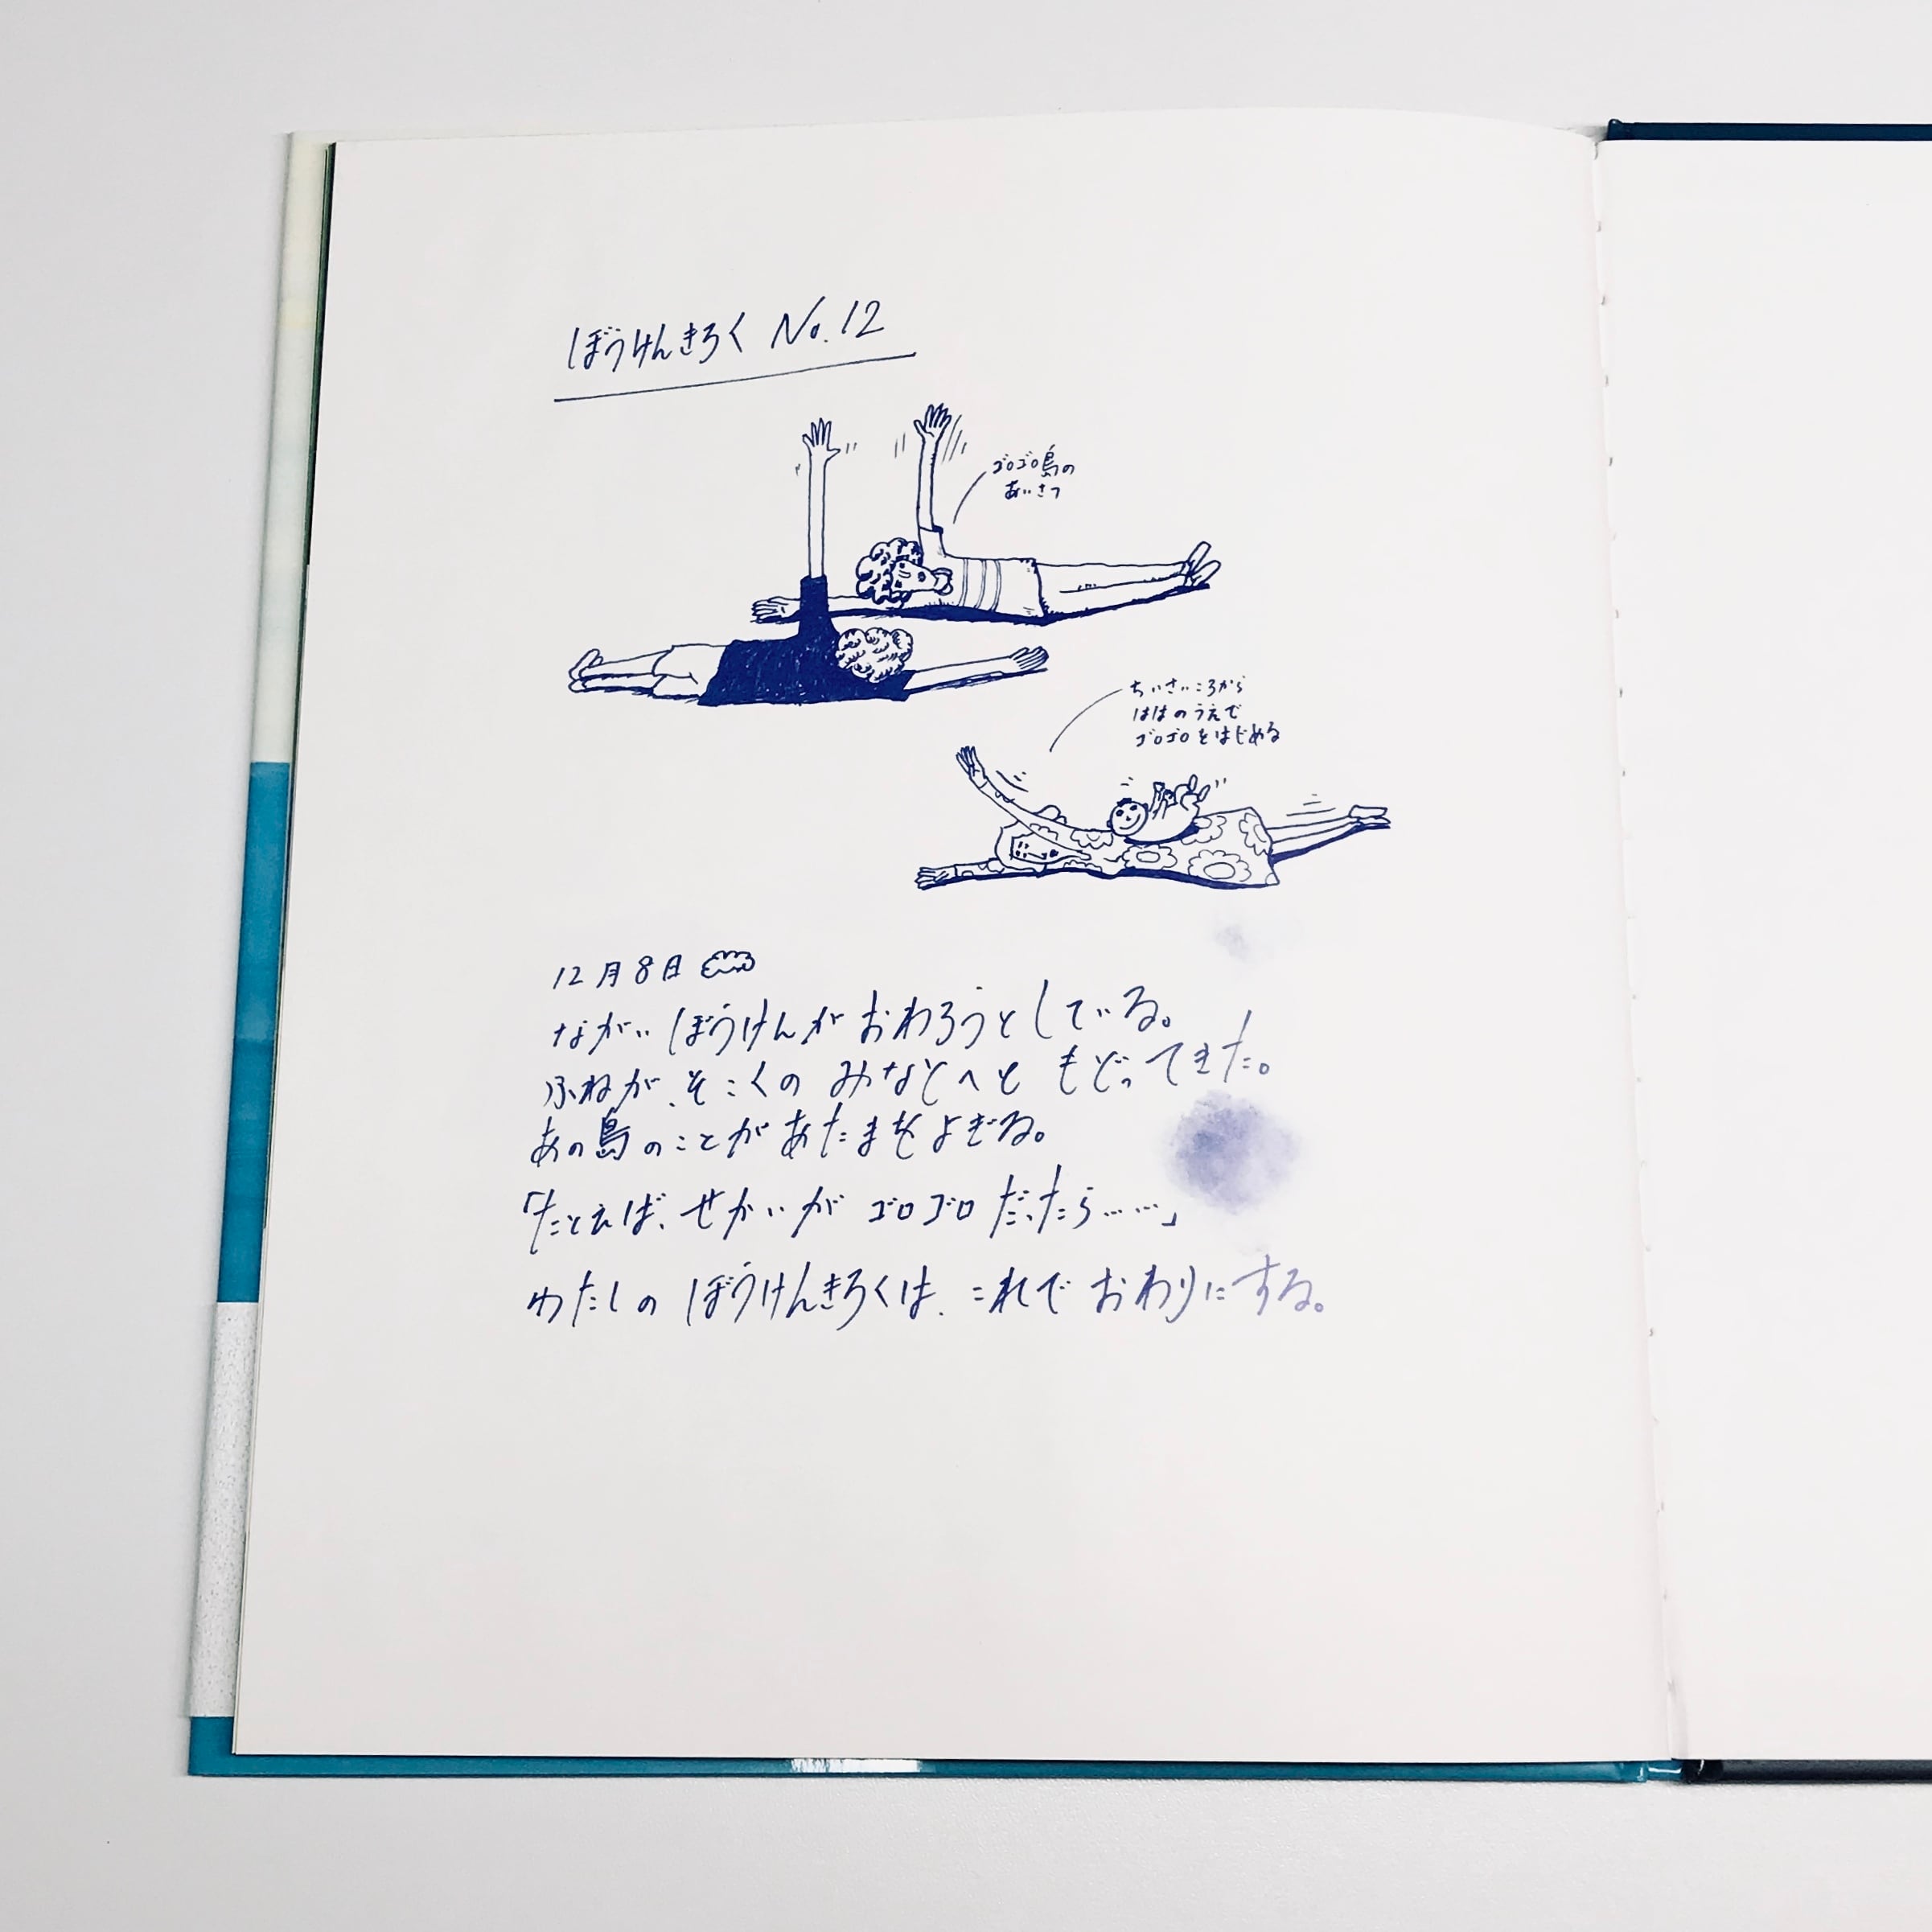 ぼうけんきろく No.12
ゴロゴロ島の
あいさつ
ちいさいころから
ははのうえで
ゴロゴロをはじめる
12月8日
ながいぼうけんがおわろうとしている。
ふねが、そこくの みなとへと もどってきた。
あの島のことがあたまをよぎる。
「たとえば、せかいが ゴロゴロ だったら……」
わたしの ぼうけんきろくは、これで おわりにする。